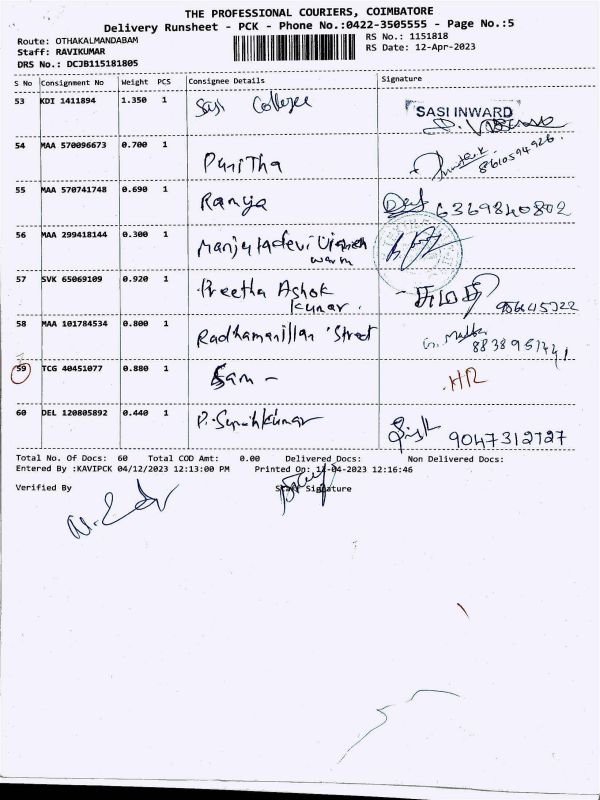 THE PROFESSIONAL COURIERS, COIMBATORE
Delivery Runsheet - PCK - Phone No.:0422-3505555 - Page No.:5
Route: OTHAKALMANDABAM
RS No.: 1151818
Staff: RAVIKUMAR
RS Date: 12-Apr-2023
DRS No.: DCJB115181805
S No Consignment No Weight PCS Consignee Details Signature
53 KDI 1411894 1.350 1 Sasi College SASI INWARD
54 MAA 570096673 0.700 1 Punitha 8610594926
55 MAA 570741748 0.690 1 Ramya 6369840802
56 MAA 299418144 0.300 1 Manjuladevi
57 SVK 65069109 0.920 1 Preetha Ashok
Kumar.
58 MAA 101784534 0.800 1 Street
59 TCG 40451077 0.880 1 Sam - HR
60 DEL 120805892 0.440 1 9047312727
Total No. Of Docs: 60 Total COD Amt: 0.00 Delivered Docs: Non Delivered Docs:
Entered By :KAVIPCK 04/12/2023 12:13:00 PM Printed On: 12-04-2023 12:16:46
Verified By Staff Signature